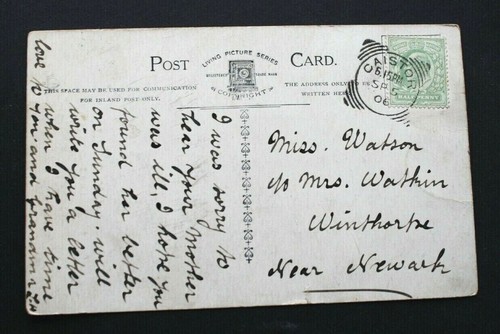 POST CARD.
LIVING PICTURE SERIES
REGISTERED TRADE MARK
COPYRIGHT
THIS SPACE MAY BE USED FOR COMMUNICATION
FOR INLAND POST-ONLY.
THE ADDRESS ONLY
WRITTEN HERE
CAISTOR
5.15PM
SP 5
06
HALFPENNY
I was sorry to
hear your Mother
was ill, I hope you
found her better
on Sunday. will
write you a letter
when I have time
love to you and
Miss. Watson
c/o Mrs. Watkin
Winthorpe
Near Newark